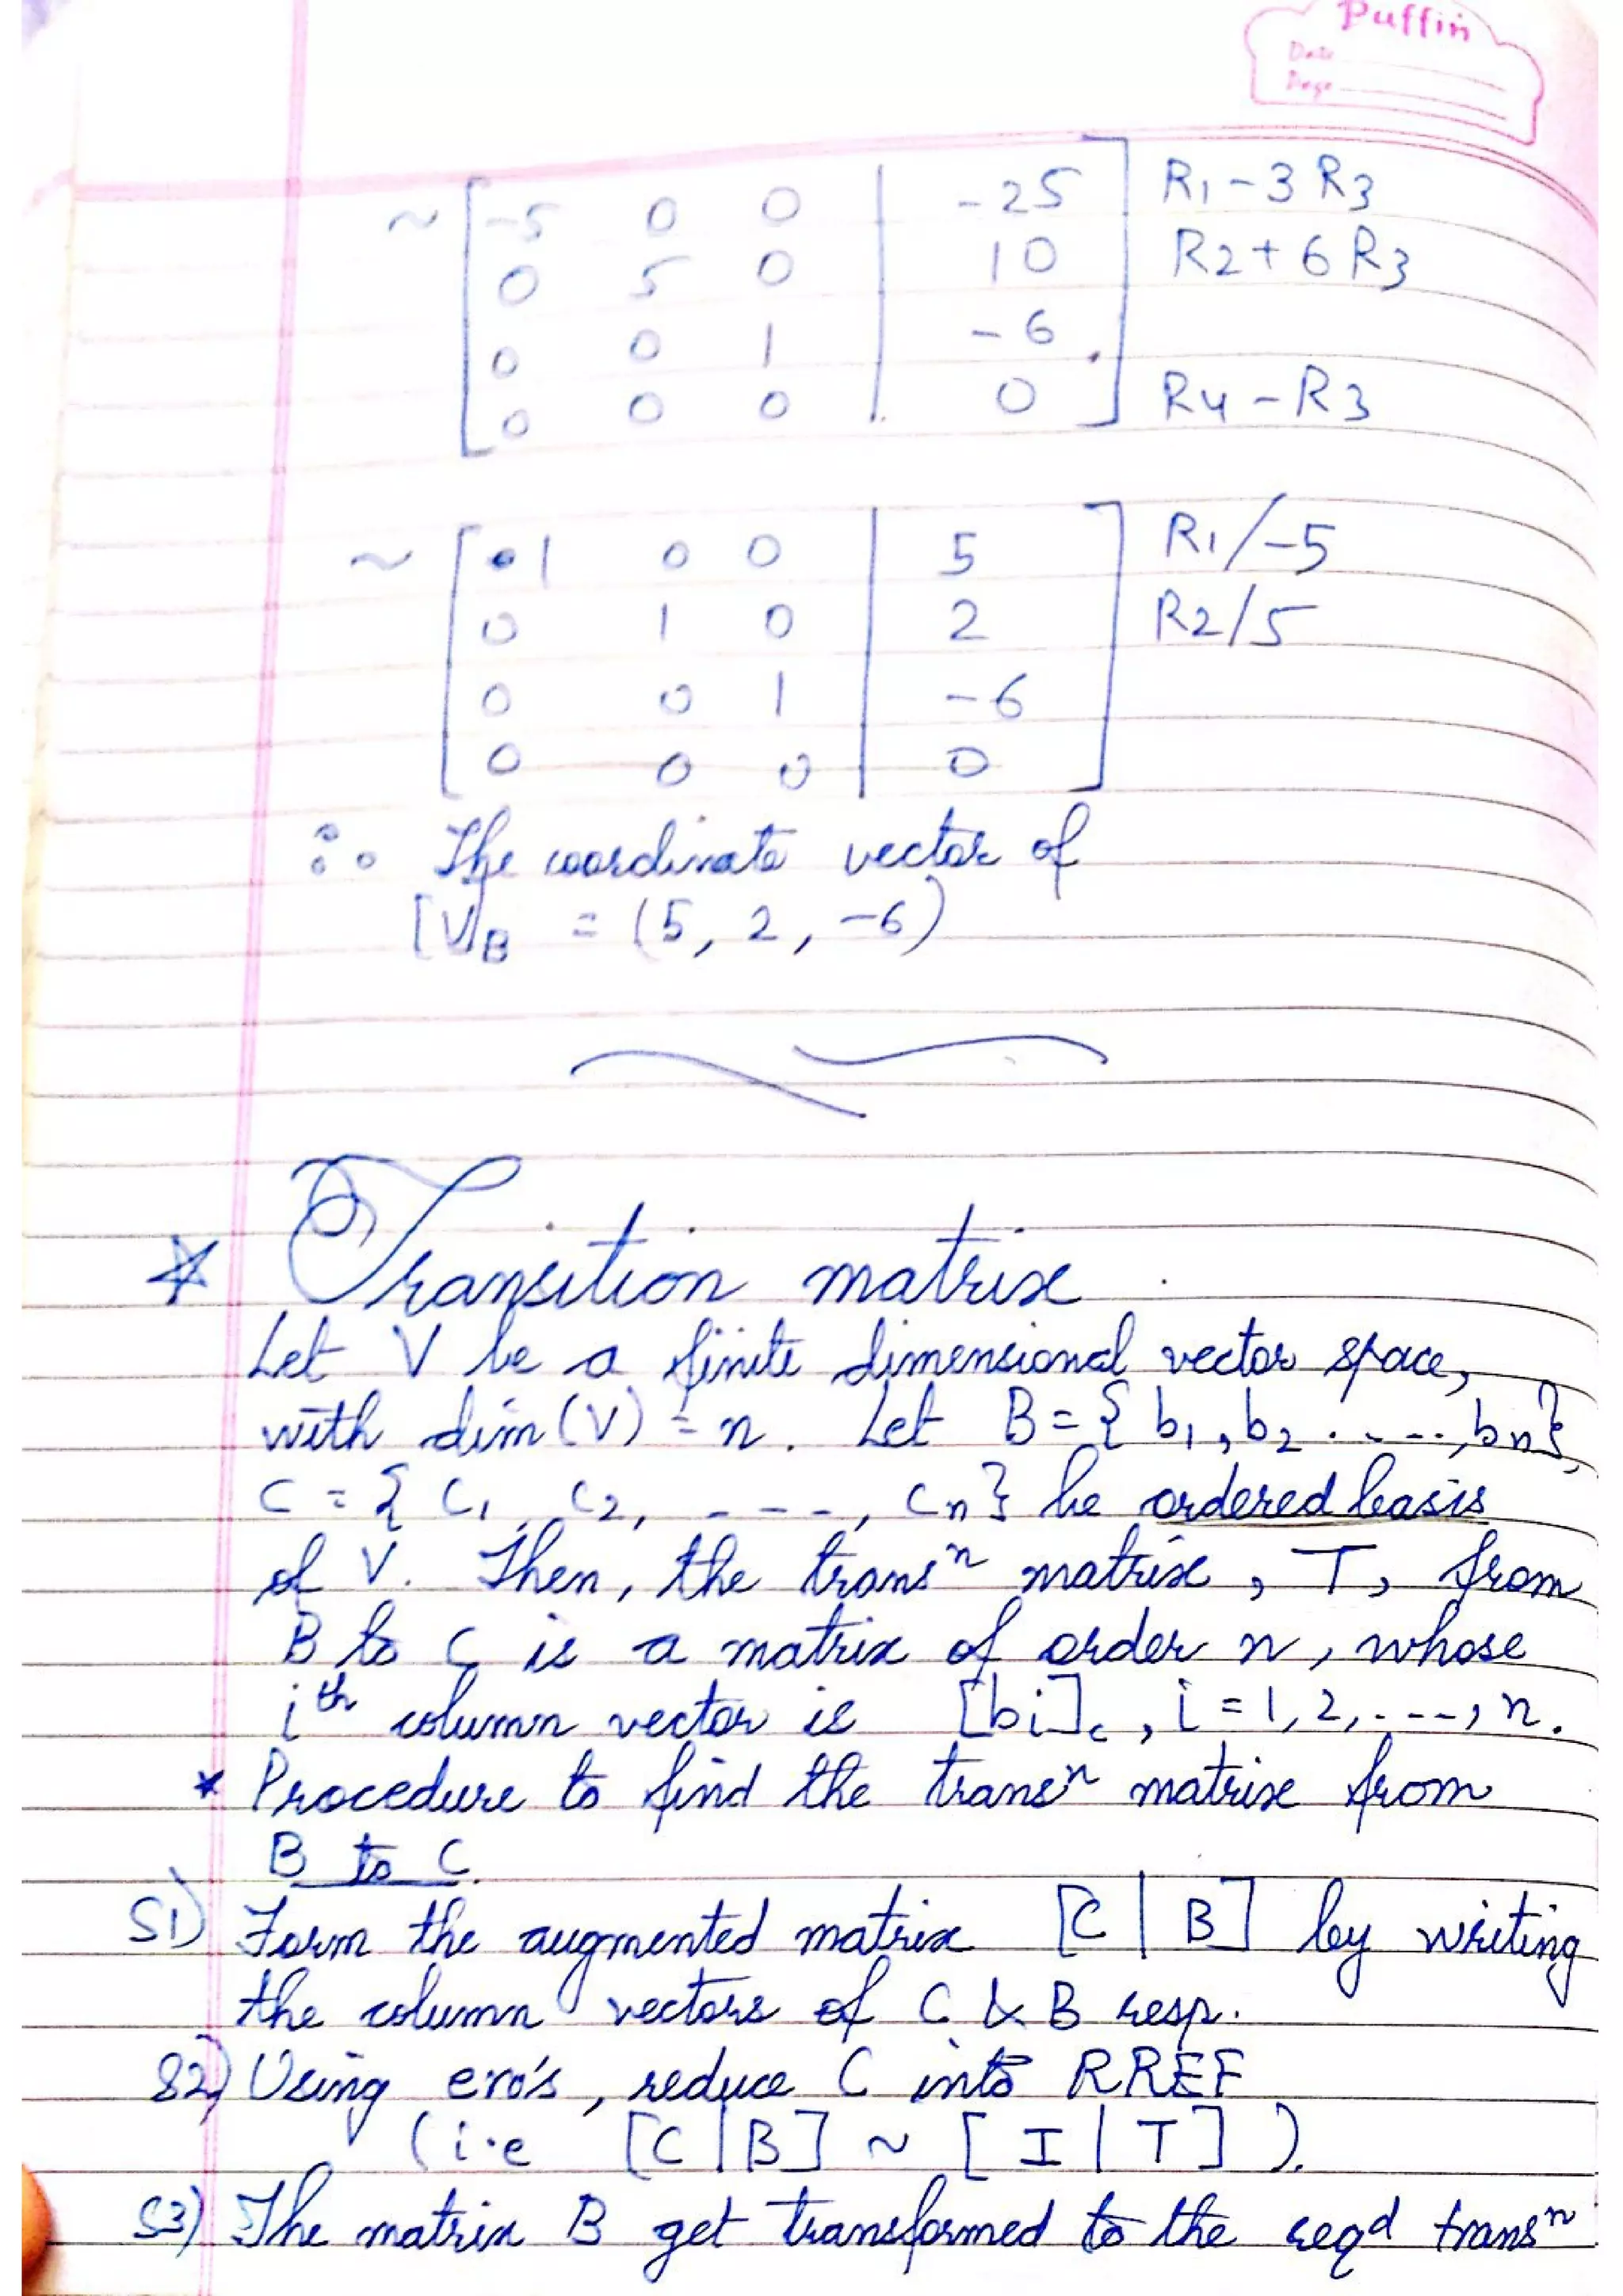 Puffin
Date
Page
~ [ -5 0 0 | -25 ] R1 - 3 R3
0 5 0 | 10 R2 + 6 R3
0 0 1 | -6
0 0 0 | 0 R4 - R3
~ [ 1 0 0 | 5 ] R1/-5
0 1 0 | 2 R2/5
0 0 1 | -6
0 0 0 | 0
∴ The coordinate vector of
[V]B = (5, 2, -6)
* Transition matrix
Let V be a finite dimensional vector space,
with dim (V) = n. Let B = { b1, b2 . - - -, bn},
C = { C1, C2, - - - -, Cn} be ordered basis
of V. Then, the transⁿ matrix, T, from
B to C is a matrix of order n, whose
ith column vector is [bi]c, i = 1, 2, - - -, n.
* Procedure to find the transⁿ matrix from
B to C.
S1) Form the augmented matrix [C | B] by writing
the column vectors of C & B resp.
S2) Using ero's, reduce C into RREF
(i.e [C | B] ~ [ I | T ] ).
S3) The matrix B get transformed to the reqd transⁿ